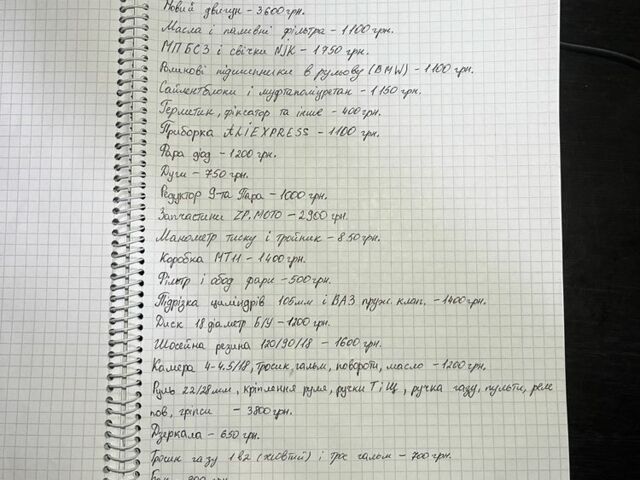 Новий двигун - 3600 грн.
Масла і паливні фільтра - 1100 грн.
МПБСЗ і свічки NJK - 1750 грн.
Роликові підшипники в рульову (BMW) - 1100 грн.
Сайлентблоки і муфтаполіуретан - 1150 грн.
Герметик, фіксатор та інше - 400 грн.
Приборка ALIEXPRESS - 1100 грн.
Фара діод - 1200 грн.
Дуги - 750 грн.
Редуктор 9-та Пара - 1000 грн.
Запчастини ZP.MOTO - 2900 грн.
Манометр тиску і тройник - 850 грн.
Коробка МТ11 - 1400 грн.
Фільтр і обод фари - 500 грн.
Підрізка циліндрів 105мм і ВАЗ пруж. клап. - 1400 грн.
Диск 18 діаметр Б/У - 1200 грн.
Шосейна резина 120/90/18 - 1600 грн.
Камера 4-4.5/18, тросик, гальм, повороти, масло - 1200 грн.
Руль 22/28мм, кріплення руля, ручки Т і Щ, ручка газу, пульти, реле
пов, гріпси - 3800 грн.
Дзеркала - 650 грн.
Тросик газу 1в2 (жовтий) і трос гальм - 700 грн.